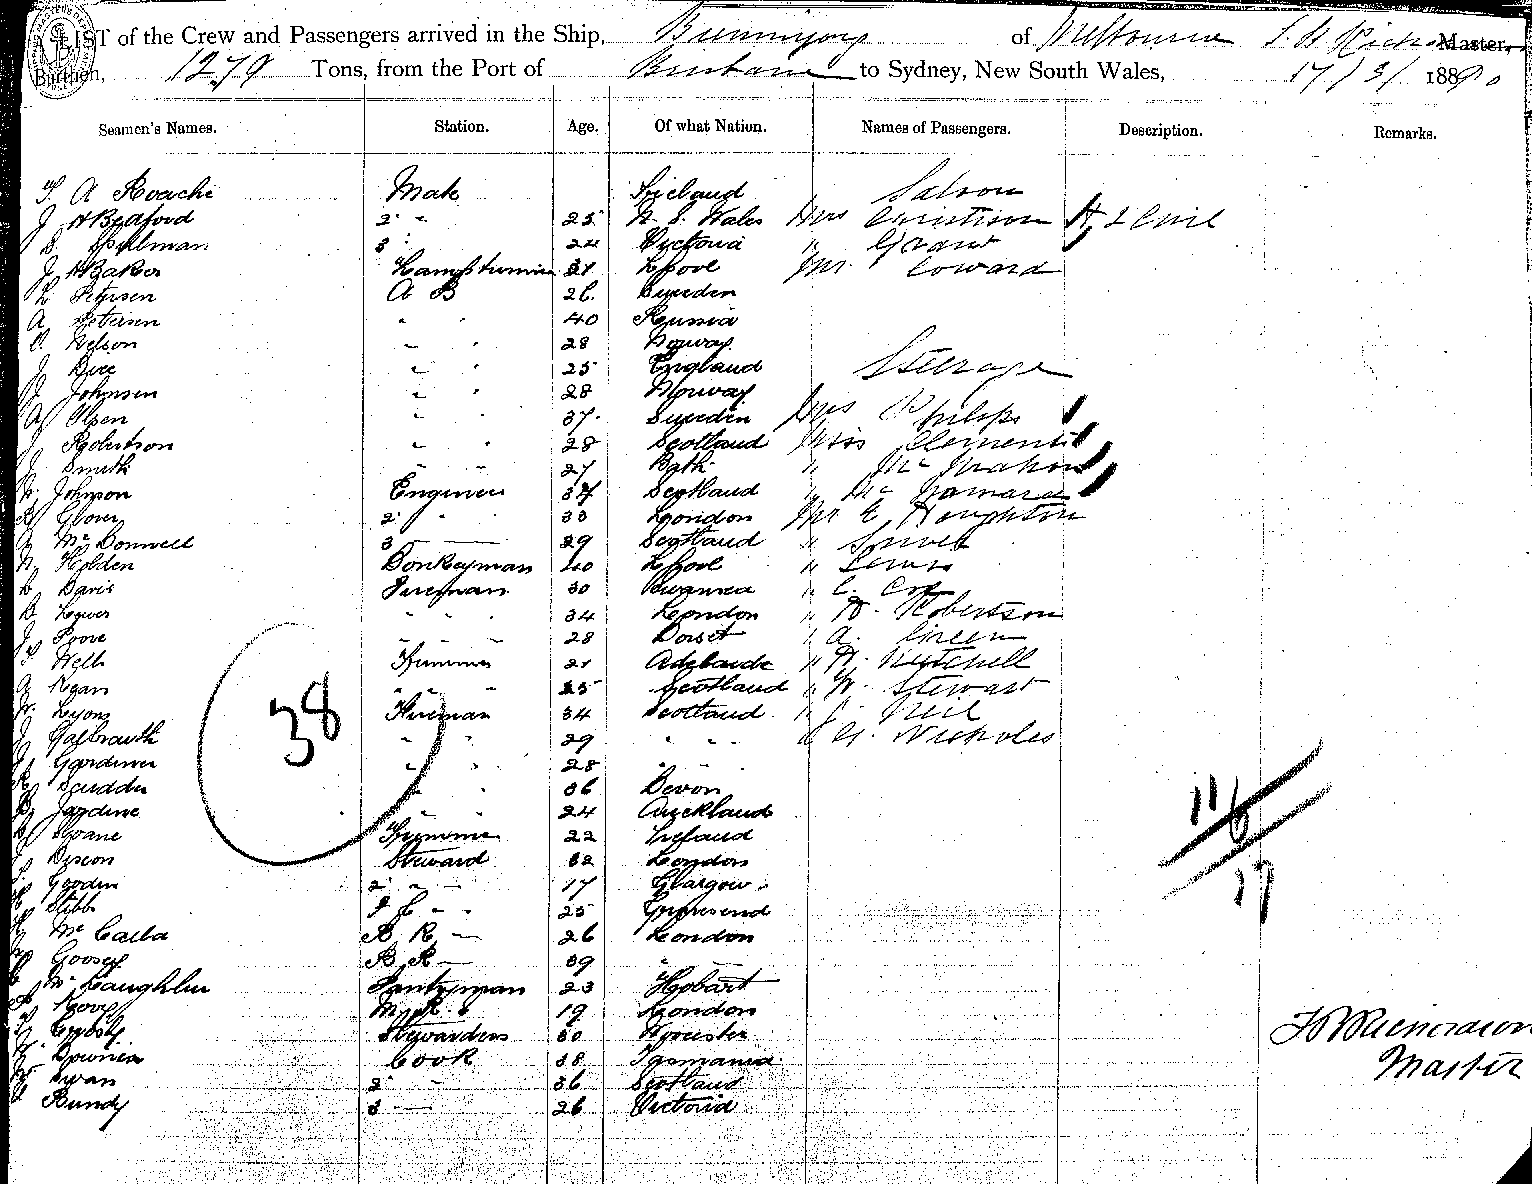 LIST of the Crew and Passengers arrived in the Ship, Buninyong of Melbourne Master,
Burthen, 1279 Tons, from the Port of Brisbane to Sydney, New South Wales, 17/3/ 1890
Seamen's Names. Station. Age. Of what Nation. Names of Passengers. Description. Remarks.
A Roache Mate Ireland Saloon
J Bedford 2 " 25 N. S. Wales Mrs Christison
Spelman 3 " 24 Victoria " Grant
J Baker Lamptrimmer L'pool Mr. Coward
Petersen A B 26 Sweden
A Petersen " " 40 Russia
Nelson " " 28 Norway
J Dice " " 25 England Steerage
J Johnsen " " 28 Norway
A Olsen " 37 Sweden Mrs Philips
J Robertson " " 28 Scotland Miss Clements
J Smith " " 27 Bath " McMahon
Johnson Engineer 37 Scotland " McNamara
Glover 2 " 33 London Mr E Houghton
McDonnell 3 — 29 Scotland "
Holden Donkeyman 40 L'pool " Lewis
Davis Fireman 30 Swansea " C. Cox
Lower " " 34 London " Robertson
J Poove " " 28 Dorset " A. Green
Wells Trimmer 21 Adelaide " Mitchell
Regan " " 25 Scotland " W. Stewart
Lyons Fireman 34 Scotland " J. Neil
J Galbraith " " 29 " " " Nicholes
38
J Gardiner " " 28 " "
Scudder " " 36 Devon
Jardine " " 24 Auckland
Sloane Trimmer 22 Ireland
116
17
Dixon Steward 32 London
Gooden 2 " — 17 Glasgow
Stibbs F C " " 25 Gravesend
McCalla B R — 26 London
Goosey B R — 39 " —
McLaughlin Pantryman 23 Hobart
M. R. 19 London
Crosby Stewardess 30 Worcester
Downie Cook 38 Tasmania
Swan 2 " 36 Scotland
Bundy 3 — 26 Victoria
Richardson
Master